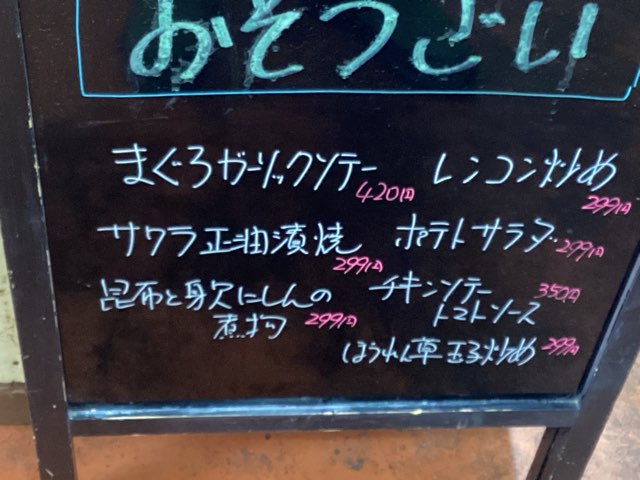 おそうざい
まぐろガーリックソテー
420円
レンコン炒め
299円
サワラ正油漬焼
299円
ポテトサラダ
299円
昆布と身欠にしんの
煮物
299円
チキンソテー
トマトソース
350円
ほうれん草玉子炒め
299円